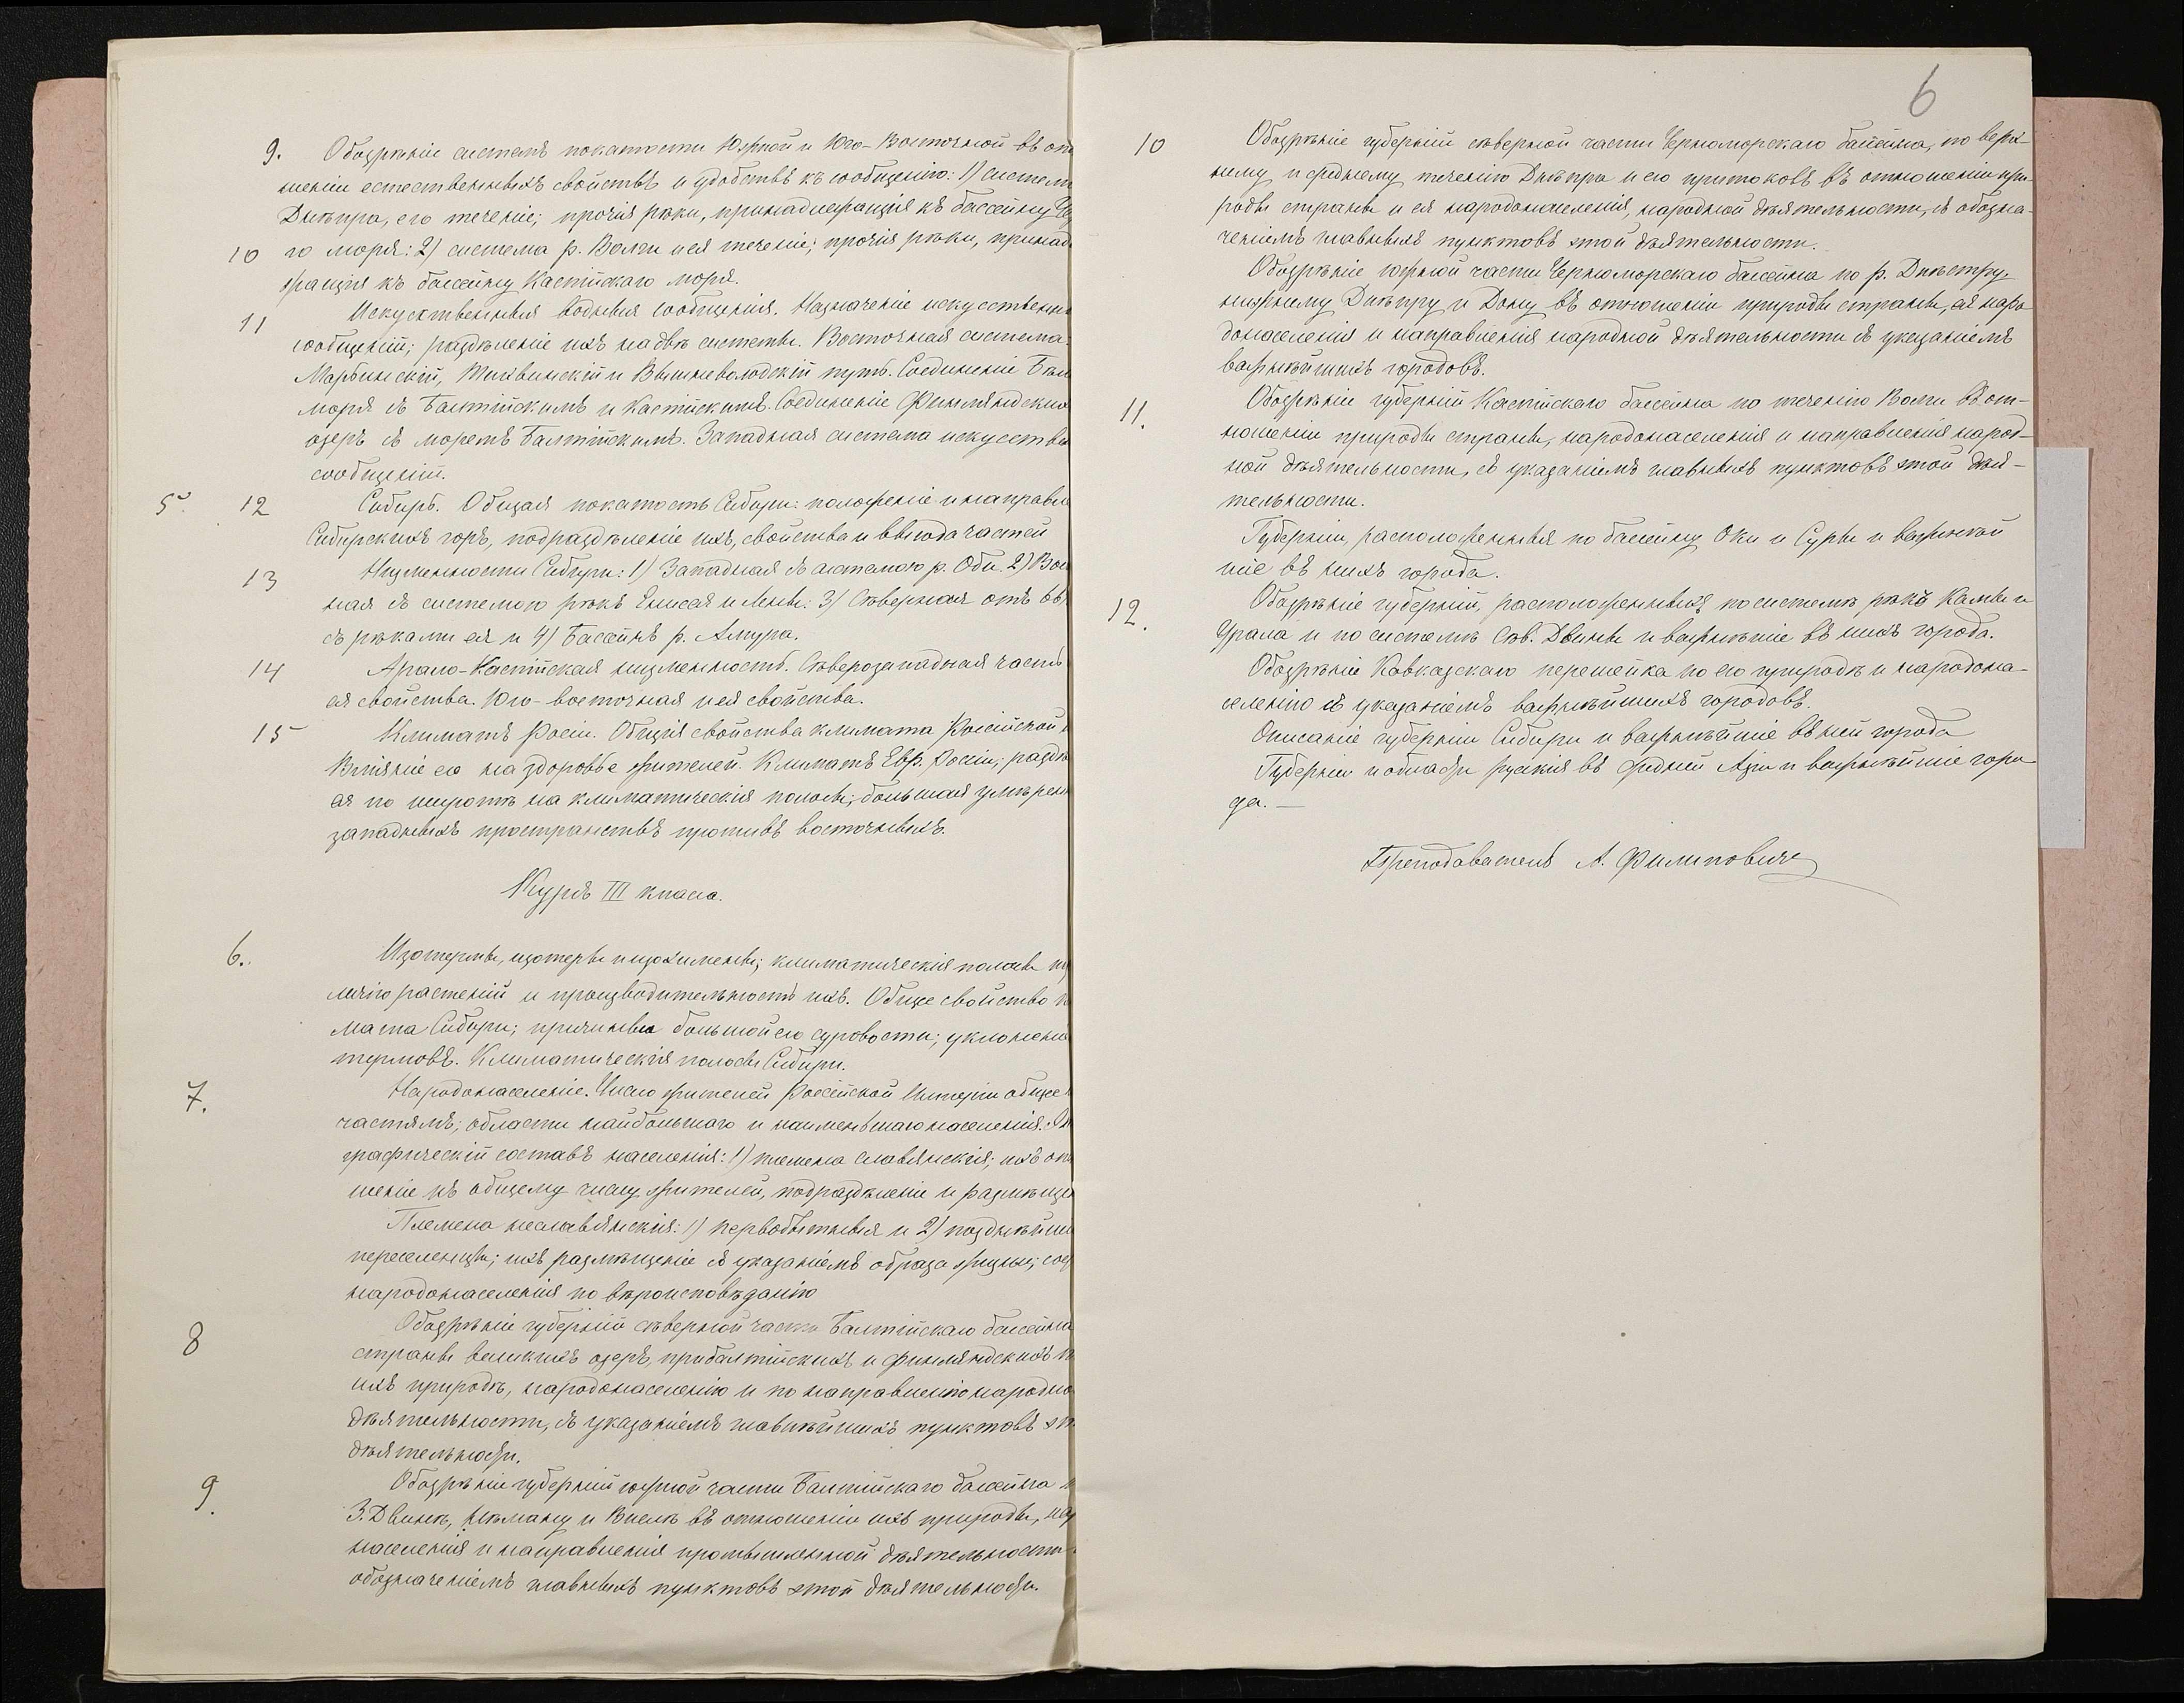 9. Обозрѣніе системъ покатости Южной и Юго-Восточной въ отно
шеніи естественныхъ свойствъ и удобствъ къ сообщенію: 1) систем
Днѣпра, его теченіе; прочія рѣки, принадлежащія къ бассейну Че
10 го моря: 2) система р. Волги и ея теченіе; прочія рѣки, принад
жащія къ бассейну Каспійскаго моря.
11 Искуственныя водныя сообщенія. Назначеніе искусственны
сообщеній; раздѣленіе ихъ на двѣ системы. Восточная система:
Маріинскій, Тихвинскій и Вышневолодскій путь. Соединеніе Бѣл
моря съ Балтійскимъ и Каспійскимъ. Соединеніе Финляндских
озеръ съ моремъ Балтійскимъ. Западная система искусствен
сообщеній.
5 12 Сибирь. Общая покатость Сибири: положеніе и направле
Сибирскихъ горъ, подраздѣленіе ихъ, свойства и выгода частей
13 Низменности Сибири: 1) Западная съ системою р. Оби. 2) Вос
ная съ системою рѣкъ Енисея и Лены: 3) Сѣверная
съ рѣками ея и 4) Бассейнъ р. Амура.
14 Арало-Каспійская низменность. Сѣверозападная часть
ея свойства. Юго-восточная и ея свойства.
15 Климатъ Росіи. Общія свойства климата Россійской
Вліяніе его на здоровье жителей. Климатъ Евр. Россіи; раздѣ
ея по широтѣ на климатическія полосы; большая умѣрен
западныхъ пространствъ противъ восточныхъ.
Курсъ III класа.
6. Изотермы, изотеры и изохимены; климатическія полосы
личію растеній и производительность ихъ. Общее свойство к
мата Сибири; причины большой его суровости; уклоненія
термовъ. Климатическія полосы Сибири.
7. Народонаселеніе. Число жителей Россійской Имперіи общее
частямъ; области наибольшаго и наименьшаго населенія. Эт
графическій составъ населенія: 1) племена славянскія; ихъ отн
шеніе къ общему числу жителей, подраздѣленіе и размѣщен
Племена неславянскія: 1) первобытныя и 2) позднѣйші
переселенцы; ихъ размѣщеніе съ указаніемъ образа жизни; сос
народонаселенія по вѣроисповѣданію
8 Обозрѣніе губерній сѣверной части Балтійскаго бассейна
страны великихъ озеръ, прибалтійскихъ и финляндскихъ п
ихъ природѣ, народонаселенію и по направленію народно
дѣятельности, съ указаніемъ главнѣйшихъ пунктовъ эт
дѣятельности.
9. Обозрѣніе губерній южной части Балтійскаго бассейна п
З. Двинѣ, Нѣману и Вислѣ въ отношеніи ихъ природы, нар
населенія и направленія промышленной дѣятельности
обозначеніемъ главныхъ пунктовъ этой дѣятельности.
6
10 Обозрѣніе губерній сѣверной части Черноморскаго бассейна, по верх-
нему и среднему теченію Днѣпра и его притоковъ въ отношеніи при-
роды страны и ея народонаселенія, народной дѣятельности, съ обозна-
ченіемъ главныхъ пунктовъ этой дѣятельности.
Обозрѣніе южной части Черноморскаго бассейна по р. Днѣстру,
нижнему Днѣпру и Дону въ отношеніи природы страны, ея наро
донаселенія и направленія народной дѣятельности съ указаніемъ
важнѣйшихъ городовъ.
11. Обозрѣніе губерній Каспійскаго бассейна по теченію Волги въ от-
ношеніи природы страны, народонаселенія и направленія народ-
ной дѣятельности, съ указаніемъ главныхъ пунктовъ этой дѣя-
тельности.
Губерніи, расположенныя по бассейну Оки и Суры и важнѣй
шіе въ нихъ города.
12. Обозрѣніе губерній, расположенныхъ по системѣ рѣкъ Камы и
Урала и по системѣ Сѣв. Двины и важнѣшіе въ нихъ города.
Обозрѣніе Кавказскаго перешейка по его природѣ и народона-
селенію съ указаніемъ важнѣйшихъ городовъ.
Описаніе губерніи Сибири и важнѣйшіе въ ней города
Губерніи и области русскія въ средней Азіи и важнѣйшіе горо
да. —
Преподаватель А. Филиповичъ